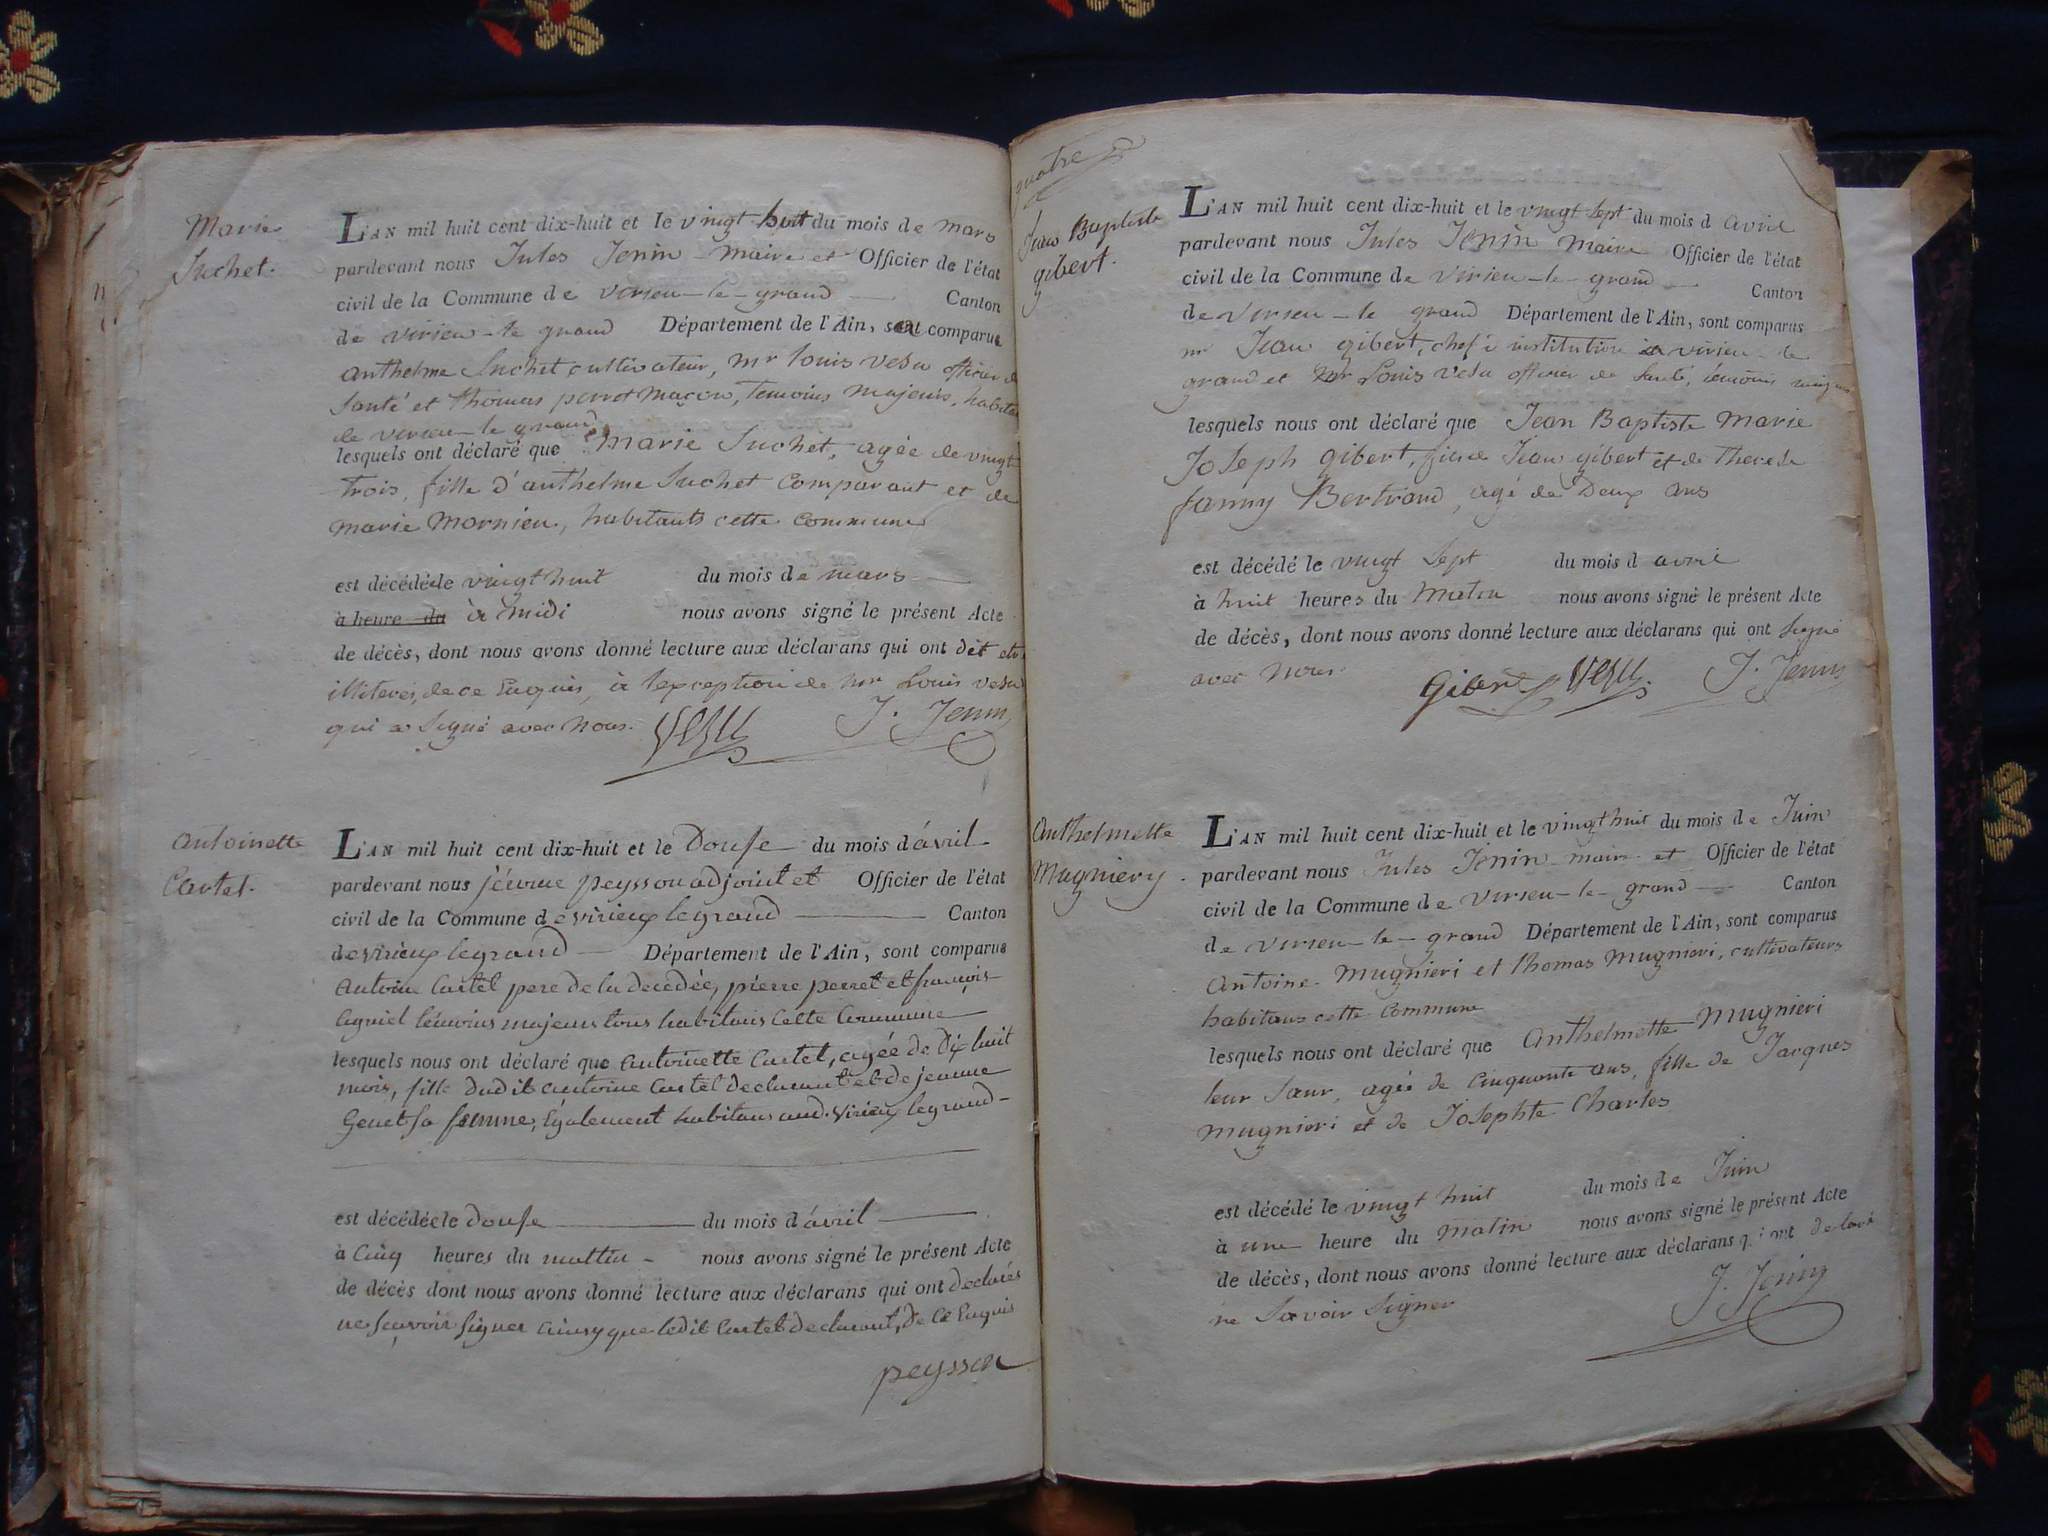 Marie
Suchet.
L'AN mil huit cent dix-huit et le vingt huit du mois de mars
pardevant nous Jules Jenin maire et Officier de l'état
civil de la Commune de virieu-le-grand Canton
de virieu-le grand Département de l'Ain, sont comparus
anthelme Suchet, cultivateur, mr louis vesu officier de
Santé et thomas perrot maçon, temoins majeurs, habitans
de virieu-le grand
lesquels ont déclaré que marie Suchet, agée de vingt
trois, fille d'anthelme Suchet comparant et de
marie mornieu, habitants cette commune
est décédée le vingt huit du mois de mars
à heure du à midi nous avons signé le présent Acte
de décès, dont nous avons donné lecture aux déclarans qui ont dit etre
illiterés, de ce Enquis, à l'exception de mr louis vesu
qui a Signé avec nous. Vesu J. Jenin
antoinette
Cartet.
L'AN mil huit cent dix-huit et le Douse du mois d'avril
pardevant nous jérome peysson adjoint et Officier de l'état
civil de la Commune de virieux legrand Canton
de virieux legrand Département de l'Ain, sont comparus
antoine Cartet pere de la decedée, pierre perret et françois
témoins majeurs tous habitans Cette Commune
lesquels nous ont déclaré que antoinette Cartet, agée de Dix huit
mois, fille dudit antoine Cartet declarant et de jeanne
Genet sa femme, Egalement habitans aud. virieux legrand
est décédée le douse du mois d'avril
à Cinq heures du mattin nous avons signé le présent Acte
de décès dont nous avons donné lecture aux déclarans qui ont declarés
ne sçavoir signer ainsy que ledit Cartet declarant, De Ce Enquis
peysson
quatre
Jean Baptiste
gibert.
L'AN mil huit cent dix-huit et le vingt Sept du mois d avril
pardevant nous Jules Jenin maire Officier de l'état
civil de la Commune de virieu-le-grand Canton
de virieu-le grand Département de l'Ain, sont comparus
mr Jean gibert, chef d'institution à virieu-le
grand et mr Louis vesu officier de Santé, temoins majeurs
lesquels nous ont déclaré que Jean Baptiste Marie
Joseph gibert, fils de Jean gibert et de therese
fanny Bertrand, agé de Deux ans
est décédé le vingt Sept du mois d avril
à huit heures du matin nous avons signé le présent Acte
de décès, dont nous avons donné lecture aux déclarans qui ont Signé
avec nous. Gibert Vesu. J. Jenin
Anthelmette
Mugniery.
L'AN mil huit cent dix-huit et le vingt huit du mois de Juin
pardevant nous Jules Jenin maire et Officier de l'état
civil de la Commune de virieu-le-grand Canton
de virieu-le-grand Département de l'Ain, sont comparus
antoine mugnieri et thomas mugnieri, cultivateurs
habitans cette commune
lesquels nous ont déclaré que Anthelmette mugnieri
leur Sœur, agée de Cinquante ans, fille de Jacques
mugnieri et de Josephte Charles
est décédé le vingt huit du mois de Juin
à une heure du matin nous avons signé le présent Acte
de décès, dont nous avons donné lecture aux déclarans qui ont declaré
ne Savoir Signer J. Jenin